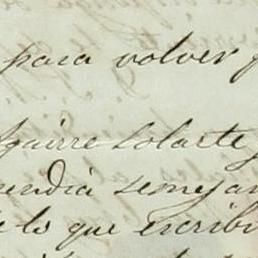 para volver
Aguirre Solarte
endia semejan
lo que escribi